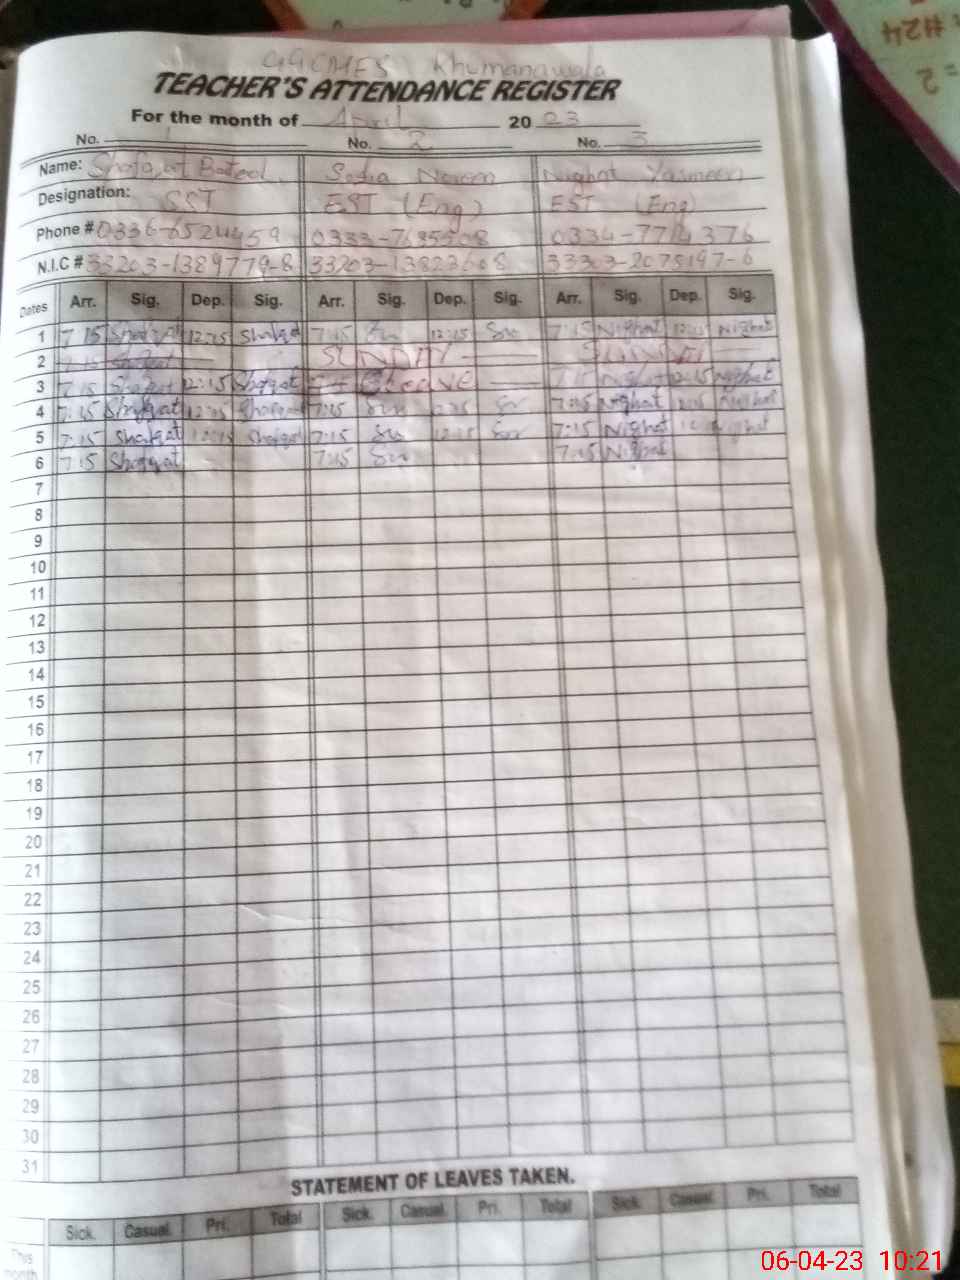 #24
= 2
GGCMES Khumanawala
TEACHER'S ATTENDANCE REGISTER
For the month of April 20 23
No. 1 No. 2 No. 3
Name: Shafqat Batool Sadia Noreen Nighat Yasmeen
Designation: SST EST (Eng) EST (Eng)
Phone # 0336-6524459 0333-7635508 0334-7714376
N.I.C # 33203-1389779-8 33203-1382360-8 33303-2075197-6
Dates Arr. Sig. Dep. Sig. Arr. Sig. Dep. Sig. Arr. Sig. Dep. Sig.
1 7:15 Shafqat 12:15 Shafqat 7:15 12:15 7:15 Nighat 12:15 Nighat
2 7:15 Shafqat SUNDAY SUNDAY
3 7:15 Shafqat 12:15 Shafqat LEAVE 7:15 Nighat 12:15 Nighat
4 7:15 Shafqat 12:15 Shafqat 7:15 12:15 7:15 Nighat 12:15 Nighat
5 7:15 Shafqat 12:15 Shafqat 7:15 12:15 7:15 Nighat Nighat
6 7:15 Shafqat 7:15 7:15 Nighat
7
8
9
10
11
12
13
14
15
16
17
18
19
20
21
22
23
24
25
26
27
28
29
30
31
STATEMENT OF LEAVES TAKEN.
Sick. Casual. Pri. Total Sick. Casual. Pri. Total Sick. Casual. Pri. Total
This
month
06-04-23 10:21